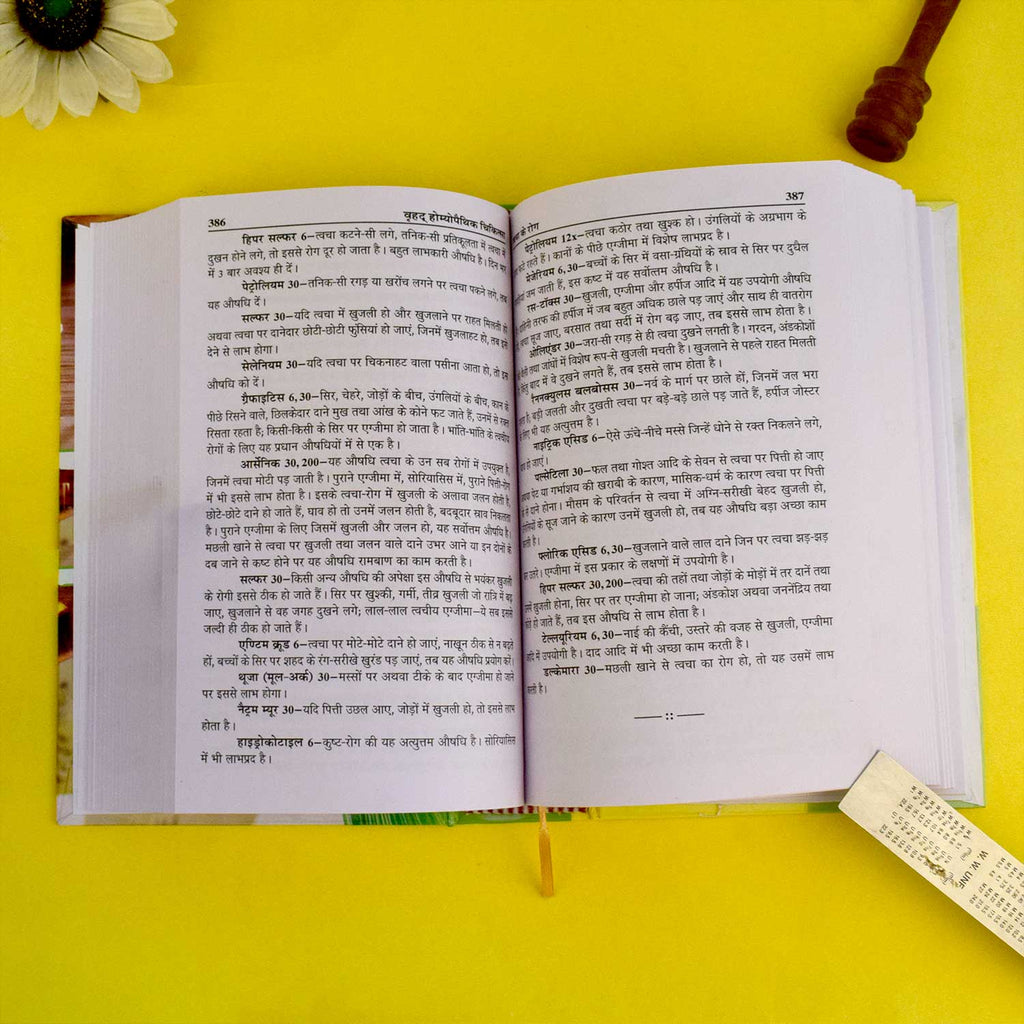 386 वृहद् होम्योपैथिक
हिपर सल्फर 6–त्वचा कटने-सी लगे, तनिक-सी प्रतिकूलता में त्वचा में
दुखन होने लगे, तो इससे रोग दूर हो जाता है। बहुत लाभकारी औषधि है। दिन भर
में 3 बार अवश्य ही दें।
पेट्रोलियम 30–तनिक-सी रगड़ या खरोंच लगने पर त्वचा पकने लगे, तब
यह औषधि दें।
सल्फर 30–यदि त्वचा में खुजली हो और खुजलाने पर राहत मिलती हो
अथवा त्वचा पर दानेदार छोटी-छोटी फुंसियां हो जाएं, जिनमें खुजलाहट हो, तब इसे
देने से लाभ होगा।
सेलेनियम 30–यदि त्वचा पर चिकनाहट वाला पसीना आता हो, तो इस
औषधि को दें।
ग्रैफाइटिस 6,30–सिर, चेहरे, जोड़ों के बीच, उंगलियों के बीच, कान के
पीछे रिसने वाले, छिलकेदार दाने मुख तथा आंख के कोने फट जाते हैं, उनमें से रक्त
रिसता रहता है; किसी-किसी के सिर पर एग्जीमा हो जाता है। भांति-भांति के त्वचीय
रोगों के लिए यह प्रधान औषधियों में से एक है।
आर्सेनिक 30,200–यह औषधि त्वचा के उन सब रोगों में उपयुक्त है,
जिनमें त्वचा मोटी पड़ जाती है। पुराने एग्जीमा में, सोरियासिस में, पुराने पित्ती-रोग
में भी इससे लाभ होता है। इसके त्वचा-रोग में खुजली के अलावा जलन होती है,
छोटे-छोटे दाने हो जाते हैं, घाव हो तो उनमें जलन होती है, बदबूदार स्राव निकलता
है। पुराने एग्जीमा के लिए जिसमें खुजली और जलन हो, यह सर्वोत्तम औषधि है।
मछली खाने से त्वचा पर खुजली तथा जलन वाले दाने उभर आने या इन दोनों के
दब जाने से कष्ट होने पर यह औषधि रामबाण का काम करती है।
सल्फर 30–किसी अन्य औषधि की अपेक्षा इस औषधि से भयंकर खुजली
के रोगी इससे ठीक हो जाते हैं। सिर पर खुश्की, गर्मी, तीव्र खुजली जो रात्रि में बढ़
जाए, खुजलाने से वह जगह दुखने लगे; लाल-लाल त्वचीय एग्जीमा–ये सब इससे
जल्दी ही ठीक हो जाते हैं।
एण्टिम क्रूड 6–त्वचा पर मोटे-मोटे दाने हो जाएं, नाखून ठीक से न बढ़ते
हों, बच्चों के सिर पर शहद के रंग-सरीखे खुरंड पड़ जाएं, तब यह औषधि प्रयोग करें।
थूजा (मूल-अर्क) 30–मस्सों पर अथवा टीके के बाद एग्जीमा हो जाने
पर इससे लाभ होगा।
नैट्रम म्यूर 30–यदि पित्ती उछल आए, जोड़ों में खुजली हो, तो इससे लाभ
होता है।
हाइड्रोकोटाइल 6–कुष्ट-रोग की यह अत्युत्तम औषधि है। सोरियासिस
में भी लाभप्रद है।
के रोग 387
पेट्रोलियम 12x–त्वचा कठोर तथा खुश्क हो। उंगलियों के अग्रभाग के
रहते हैं। कानों के पीछे एग्जीमा में विशेष लाभप्रद है।
मेजेरियम 6,30–बच्चों के सिर में वसा-ग्रंथियों के स्राव से सिर पर दुधैल
जम जाती हैं, इस कष्ट में यह सर्वोत्तम औषधि है।
रस-टॉक्स 30–खुजली, एग्जीमा और हर्पीज आदि में यह उपयोगी औषधि
तरफ की हर्पीज में जब बहुत अधिक छाले पड़ जाएं और साथ ही वातरोग
सूज जाए, बरसात तथा सर्दी में रोग बढ़ जाए, तब इससे लाभ होता है।
ओलिएंडर 30–जरा-सी रगड़ से ही त्वचा दुखने लगती है। गरदन, अंडकोशों
तथा जांघों में विशेष रूप-से खुजली मचती है। खुजलाने से पहले राहत मिलती
बाद में ये दुखने लगते हैं, तब इससे लाभ होता है।
रैननक्युलस बलबोसस 30–नर्व के मार्ग पर छाले हों, जिनमें जल भरा
है, बड़ी जलती और दुखती त्वचा पर बड़े-बड़े छाले पड़ जाते हैं, हर्पीज जोस्टर
लिए भी यह अत्युत्तम है।
नाइट्रिक एसिड 6–ऐसे ऊंचे-नीचे मस्से जिन्हें धोने से रक्त निकलने लगे,
हो जाएं।
पल्सेटिला 30–फल तथा गोश्त आदि के सेवन से त्वचा पर पित्ती हो जाए
पेट या गर्भाशय की खराबी के कारण, मासिक-धर्म के कारण त्वचा पर पित्ती
दाने होना। मौसम के परिवर्तन से त्वचा में अग्नि-सरीखी बेहद खुजली हो,
के सूज जाने के कारण उनमें खुजली हो, तब यह औषधि बड़ा अच्छा काम
करती है।
फ्लोरिक एसिड 6,30–खुजलाने वाले लाल दाने जिन पर त्वचा झड़-झड़
उतरे। एग्जीमा में इस प्रकार के लक्षणों में उपयोगी है।
हिपर सल्फर 30,200–त्वचा की तहों तथा जोड़ों के मोड़ों में तर दानें तथा
खुजली होना, सिर पर तर एग्जीमा हो जाना; अंडकोश अथवा जननेंद्रिय तथा
हो जाते हैं, तब इस औषधि से लाभ होता है।
टेल्लयूरियम 6,30–नाई की कैंची, उस्तरे की वजह से खुजली, एग्जीमा
आदि में उपयोगी है। दाद आदि में भी अच्छा काम करती है।
डल्केमारा 30–मछली खाने से त्वचा का रोग हो, तो यह उसमें लाभ
करती है।
W. W. UNF